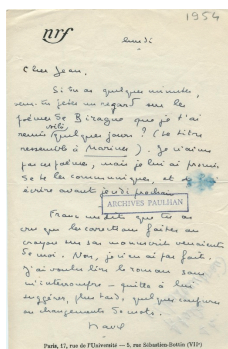 1954
nrf
lundi
Cher Jean,
Si tu as quelques minutes,
veux-tu jeter un regard sur les
poèmes de Biragne que je t'ai
remis voilà quelques jours ? (Le titre
ressemble à Marines). Je n'aime
pas ces poèmes, mais je lui ai promis
de te les communiquer, et de
écrire avant jeudi prochain
ARCHIVES PAULHAN
Franc me dit que tu as
cru que les corrections faites au
crayon sur son manuscrit venaient
de moi. Non, je n'en ai pas fait.
J'ai voulu lire le roman sans
m'interrompre – quitte à lui
suggérer, plus tard, quelques coupures
ou changements de mots.
Marcel
Paris, 17, rue de l'Université — 5, rue Sébastien-Bottin (VIIe)